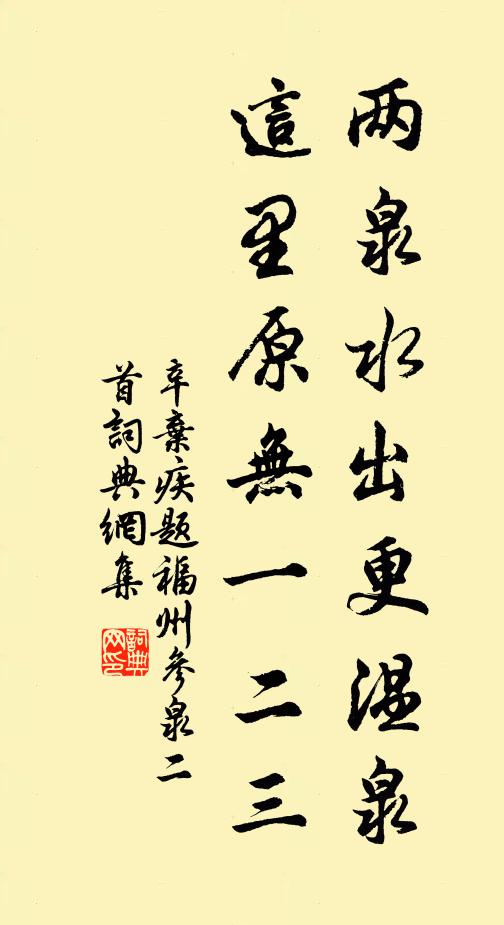 两泉水出更温泉
這里原無一二三
辛棄疾題福州參泉二
首詞典網集
詞典網印